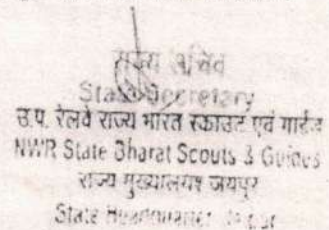 राज्य सचिव
State Secretary
उ.प. रेलवे राज्य भारत स्काउट एवं गाईड
NWR State Bharat Scouts & Guides
राज्य मुख्यालयः जयपुर
State Headquarter Jaipur